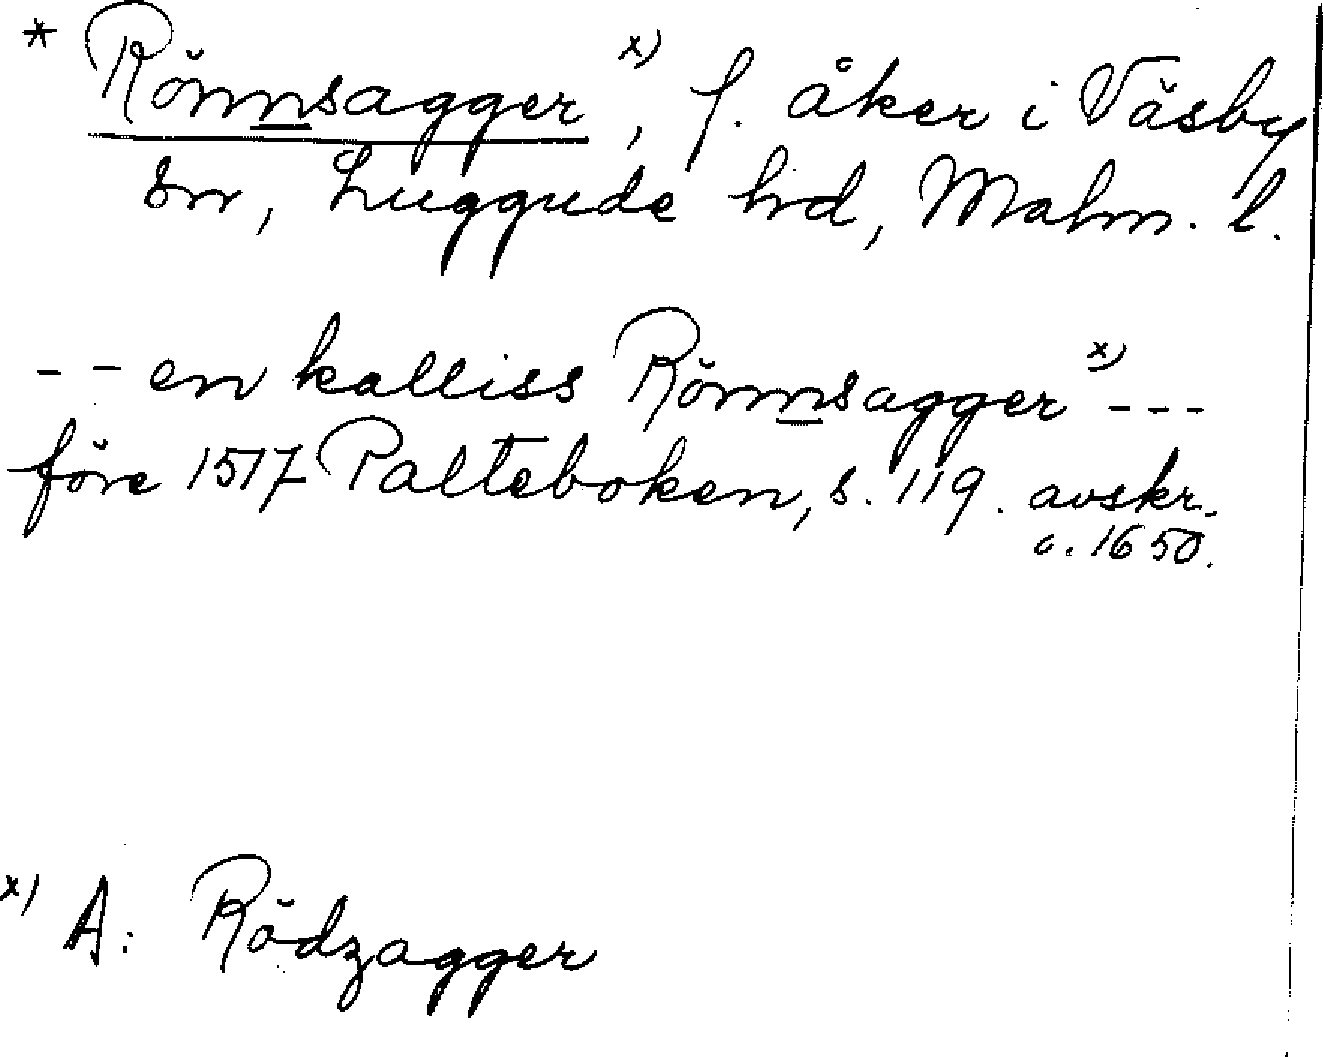 * Rönnsagger x), f. åker i Väsby
sn, Luggude hd, Malm. l.
-- en kalliss Rönnsagger x) ---
före 1517 Palteboken, s. 119. avskr.
c. 1650.
x) A: Rödzagger